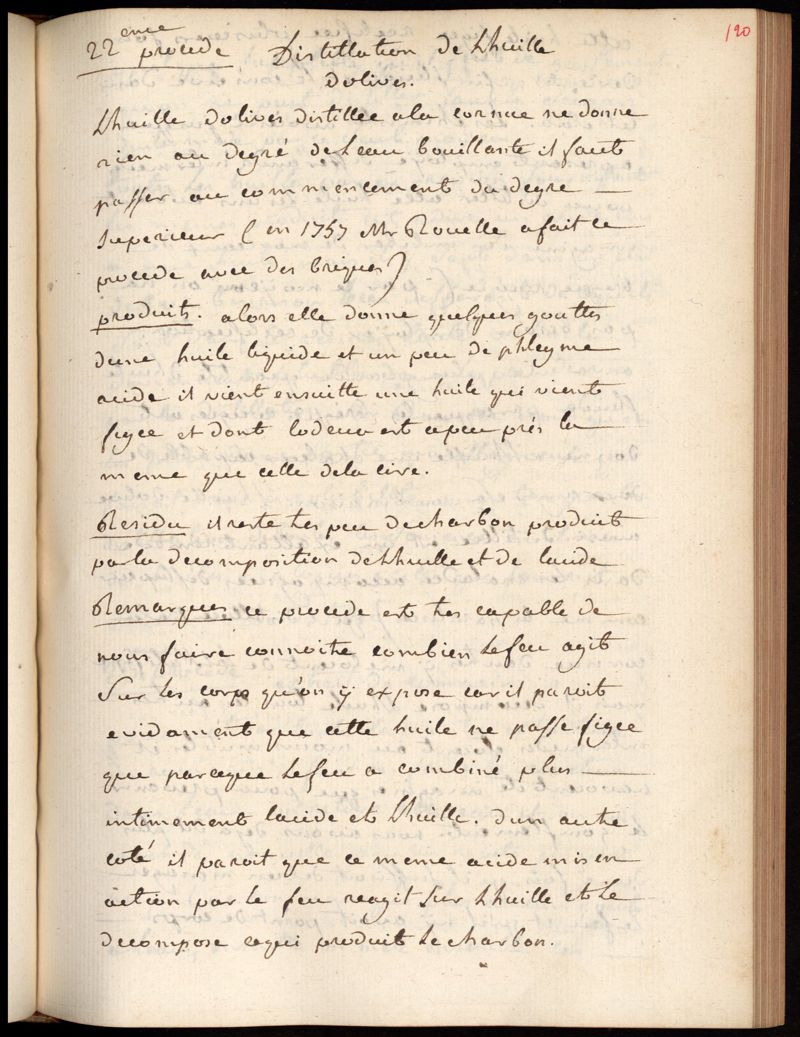 120
22eme procede Distillation de Lhuille
Dolives.
Lhuille Dolives distillee ala cornue ne donne
rien au degré de Leau bouillante il faut
passer au commencement du degre
superieur (en 1757 Mr Rouelle a fait ce
procede avec des briques)
produits. alors elle donne quelques gouttes
dune huile liquide et un peu de phlegme
acide il vient ensuitte une huile qui vient
figee et dont lodeur est apeu prés la
meme que celle dela cire.
Residu il reste tres peu de charbon produit
par la decomposition de Lhuille et de lacide
Remarques ce procede est tres capable de
nous faire connoitre combien Le feu agit
Sur les corps qu'on ÿ expose car il paroit
evidament que cette huile ne passe figee
que parceque Le feu a combiné plus
intimement lacide et Lhuille. dun autre
coté il paroit que ce meme acide mis en
action par le feu reagit Sur Lhuille et Le
decompose cequi produit Le charbon.